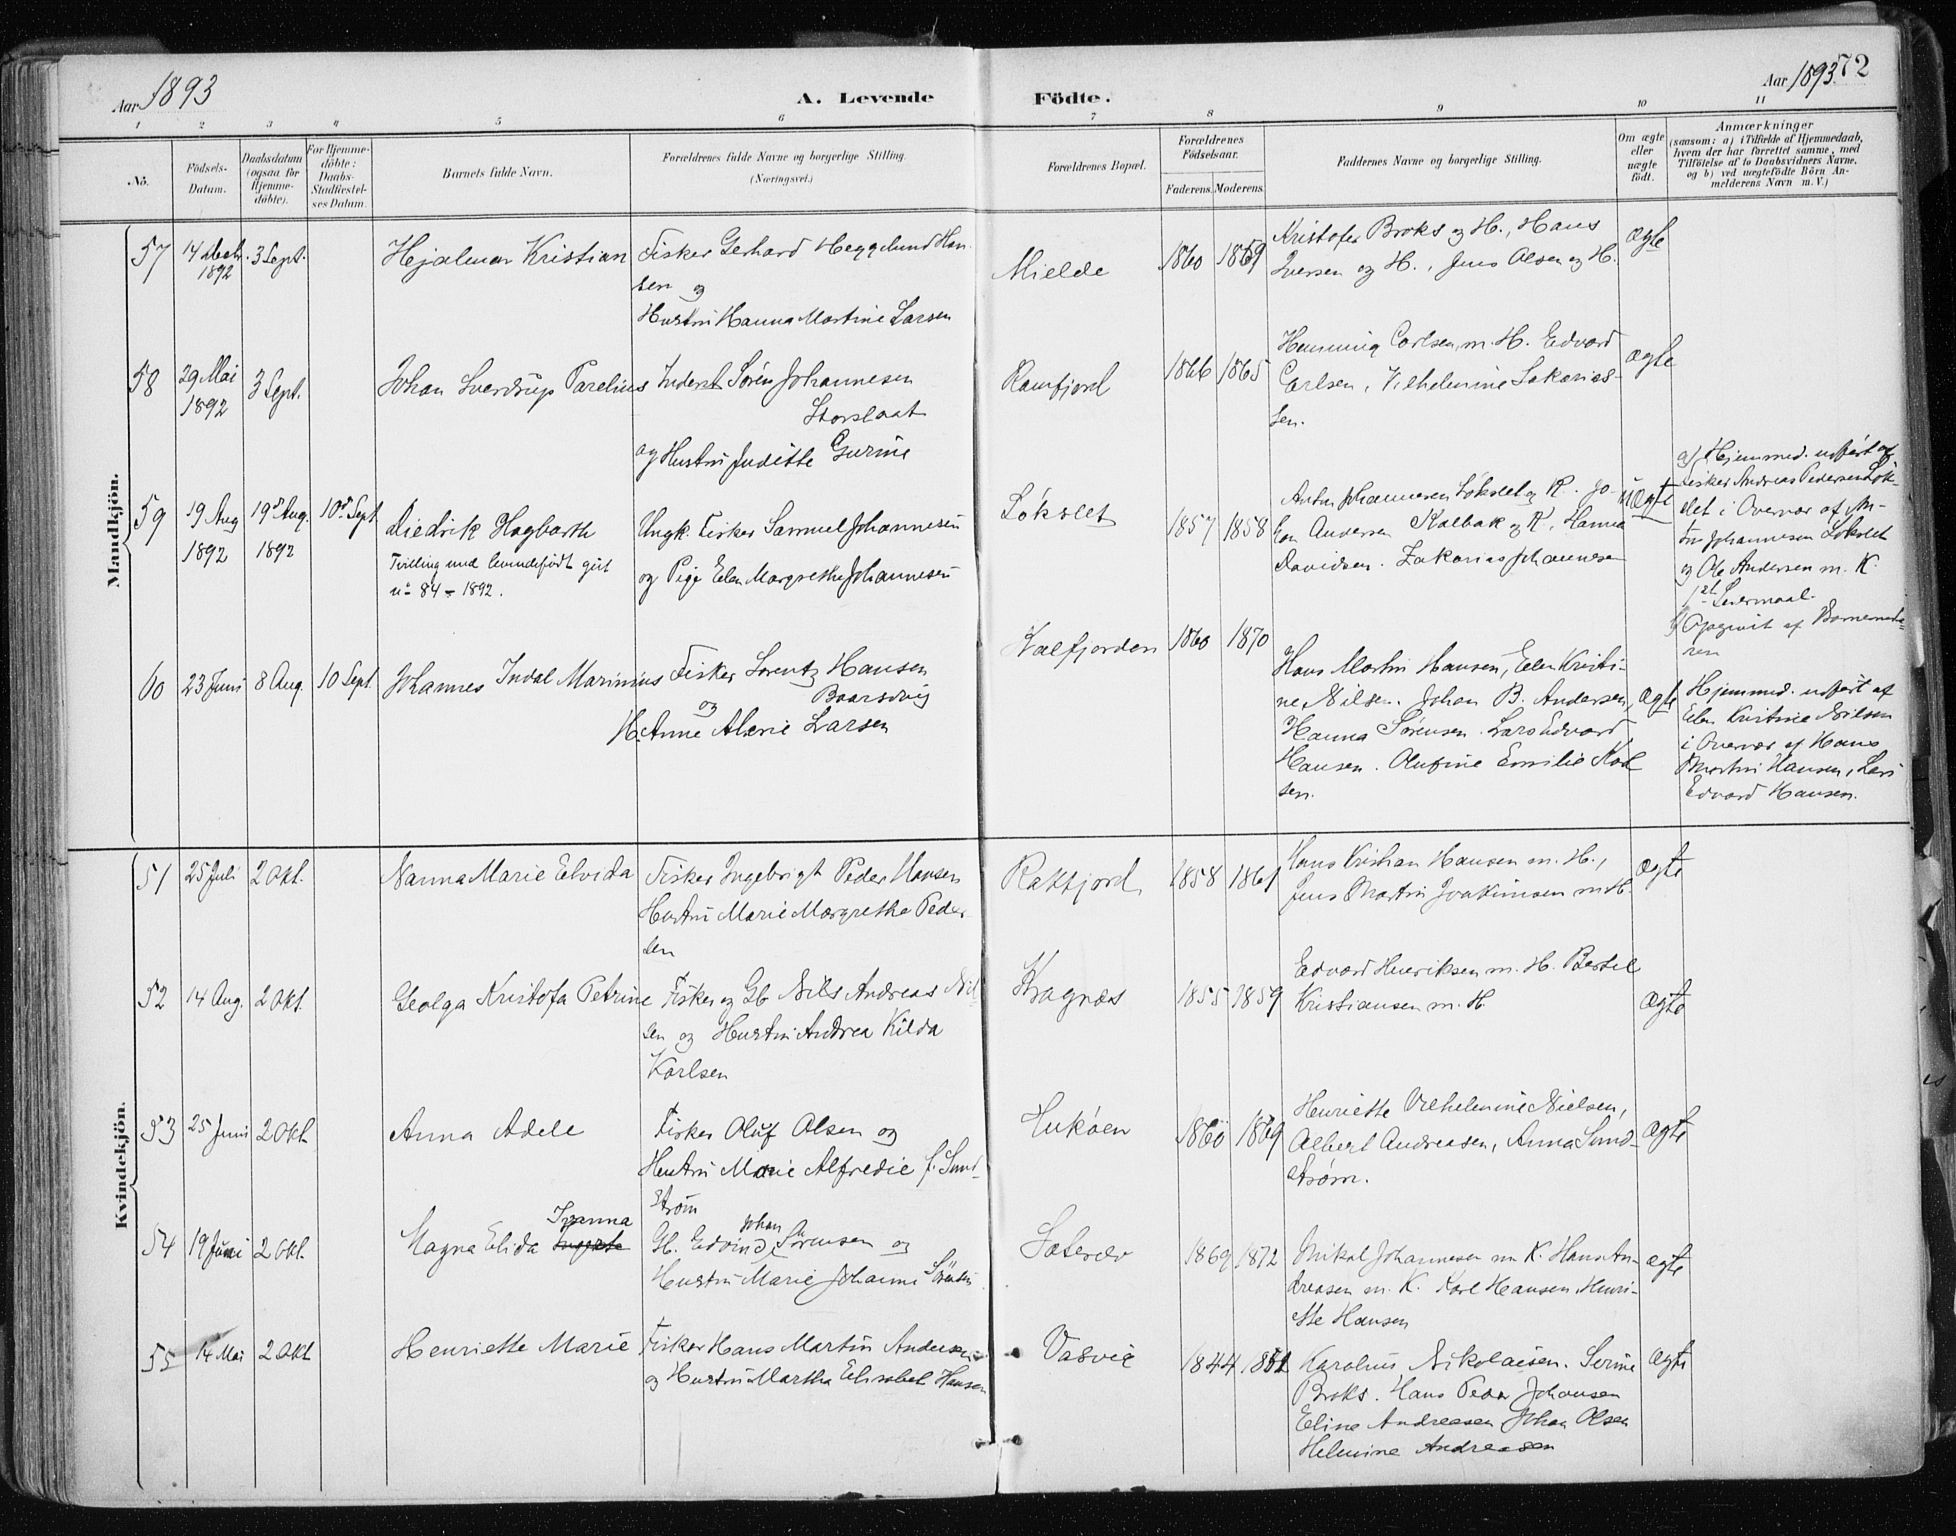 Aar 1893
A. Levende Födte.
Aar 1893.
72
1 2 3 4 5 6 7 8 9 10 11
No.
Födsels-
Datum.
Daabsdatum
(ogsaa for
Hjemme-
döbte).
For Hjemme-
döbte:
Daabs-
Stadfæstel-
ses Datum.
Barnets fulde Navn.
Forældrenes fulde Navne og borgerlige Stilling.
(Næringsvei.)
Forældrenes Bopæl.
Forældrenes
Födselsaar.
Faderens. Moderens.
Faddernes Navne og borgerlige Stilling.
Om ægte
eller
uægte
födt.
Anmærkninger
(saasom: a) i Tilfælde af Hjemmedaab,
hvem der har forrettet samme, med
Tilföielse af to Daabsvidners Navne,
og b) ved uægtefödte Börn An-
melderens Navn m. V.)
Mandkjön.
57
14
1892
3 Sept.
Hjalmar Kristian
Fisker Gerhard Heggelund Han-
sen og
Hustru Hanna Martine Larsen
Mielde
1860 1869
Kristofer Broks og H., Hans
Iversen og H., Jens Olsen og H.
ægte
58
29 Mai
1892
3 Sept.
Johan Sverdrup Parelius
Inderst Sören Johannesen
Storslaat
og Hustru Juditte Gurine
Ramfjord
1866 1865
Henning Carlsen m. H. Edvard
Carlsen, Vilhelmine Sakarias-
sen.
ægte
59
19 Aug
1892
19 Aug.
1892
10 Sept
Diedrik Hagbarth
Tvilling med levendefødt gut
no 84 - 1892.
Ungk. Fisker Samuel Johannesen
og Pige Elen Margrethe Johannesen
Løkslet
1857 1858
Anton Johannesen Løkslet og K. Jo-
han Andersen Kalbak og K, Hanna
Davidsen. Zakarias Johannesen
uægte
a) Hjemmed. udført af
Fisker Andreas Pedersen Løk-
slet i Overvær af An-
ton Johannesen Løkslet
og Ole Andersen m. K.
1st Leiermaal.
b) Opgivet af Barnemode-
ren
60
23 Juni
8 Aug.
10 Sept.
Johannes Indal Marinius
Fisker Lorentz Hansen
Baarsvig
og
H. Anne Alerie Larsen
Kalfjorden
1860 1870
Hans Martin Hansen, Elen Kristi-
ne Nilsen. Johan B. Andersen,
Hanna Sørensen. Lars Edvard
Hansen. Olufine Emilie Karl
sen.
ægte
Hjemmed. udført af
Elen Kristine Nilsen
i Overvær af Hans
Martin Hansen, Lars
Edvard Hansen.
Kvindekjön.
51
25 Juli
2 Okt.
Nanna Marie Elvida
Fisker Ingebrigt Peder Hansen
Hustru Marie Margrethe Peder
sen
Rakfjord
1858 1861
Hans Kristian Hansen m. H.,
Jens Martin Joakimsen m. H.
ægte
52
14 Aug.
2 Okt.
Geolga Kristofa Petrine
Fisker og Gb Nils Andreas Nil-
sen og Hustru Andrea Kilda
Karlsen
Kragnæs
1855 1859
Edvard Henriksen m. H. Bertel
Kristiansen m. H.
ægte
53
25 Juni
2 Okt.
Anna Adele
Fisker Oluf Olsen og
Hustru Marie Alfredie f. Sund-
strøm
Hukøen
1860 1869
Henriette Vilhelmine Nielsen,
Albert Andreasen, Anna Sund-
strøm.
ægte
54
19 Juni
2 Okt.
Ivanna
Magna Elida
Johan
Gb. Edvind Sørensen og
Hustru Marie Johanne
1869 1872
Mikal Johannesen m K. Hans An-
dreasen m. K. Karl Hansen, Henri-
ette Hansen
ægte
55
14 Mai
2 Okt
Henriette Marie
Fisker Hans Martin Andersen
og Hustru Martha Elisabet Hansen
Vasvig
1844 1852
Karolius Nikolaisen. Serine
Broks. Hans Peder Johansen
Eline Andreasen Johan Olsen
Helmine Andreasen
ægte